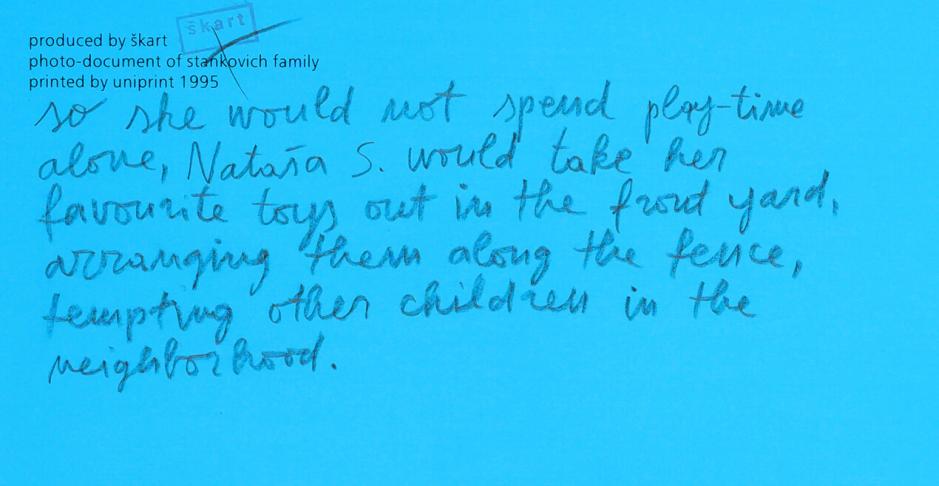 škart
produced by škart
photo-document of stankovich family
printed by uniprint 1995
so she would not spend play-time
alone, Nataša S. would take her
favourite toys out in the front yard,
arranging them along the fence,
tempting other children in the
neighborhood.